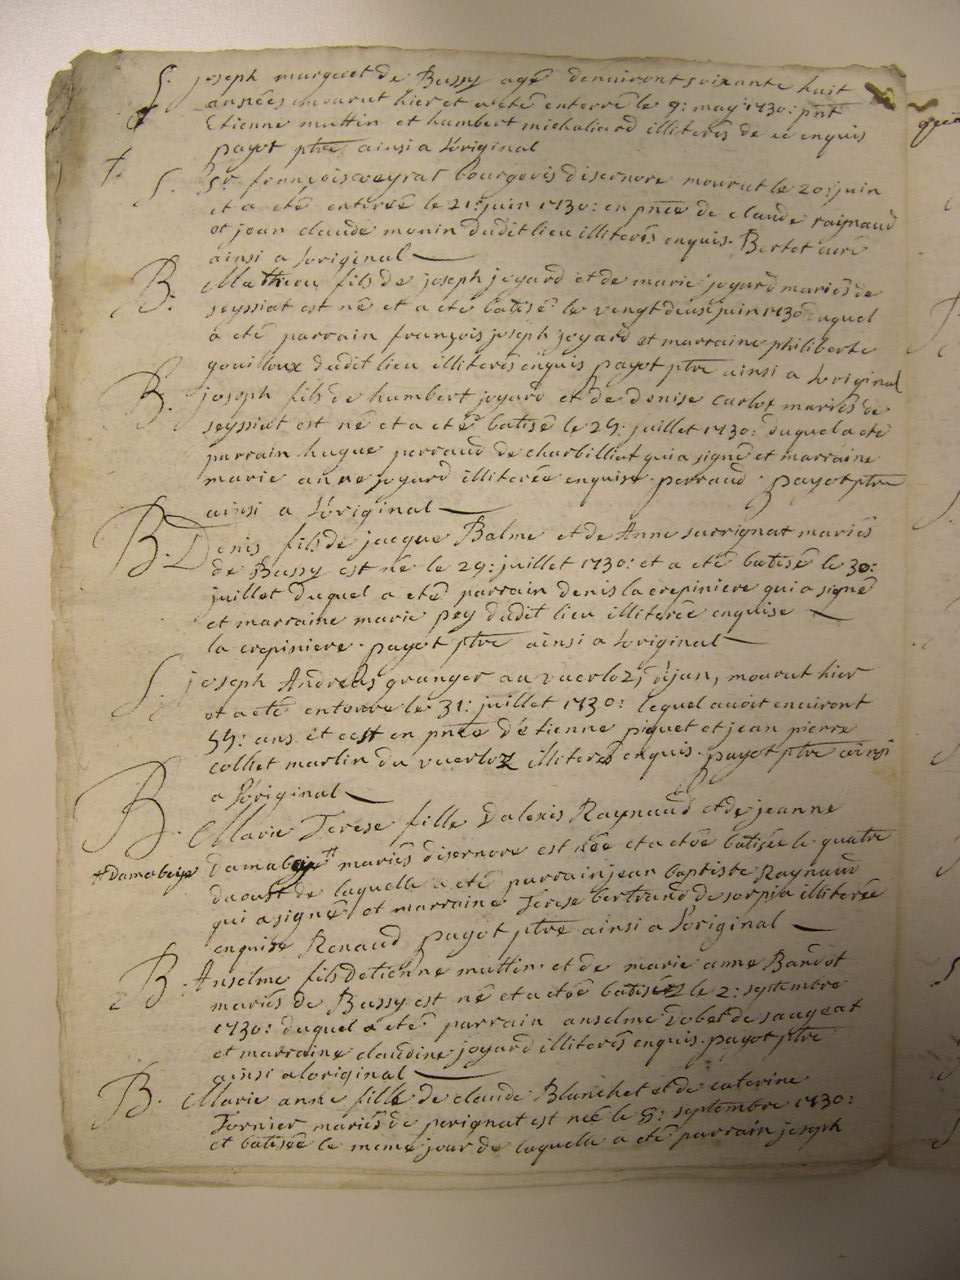 S. joseph marguet de Bussy agé denuiront soixante huit
années mourut hier et a eté enterré le 9: may 1730: pnt
Etienne muttin et humbert michaliard illiterés de ce enquis
payot ptre ainsi a l'original
†. S. Sr. françois veyrat bourgeois disernore mourut le 20: juin
et a eté enterré le 21: juin 1730: en pnce de claude raynaud
et jean claude monin dudit lieu illiterés enquis. Bertet curé
ainsi a l'original
B. Mathieu fils de joseph joyard et de marie joyard mariés de
seyssiat est né et a eté batisé le vengt deus juin 1730 duquel
a eté parrain françois joseph joyard et marraine philiberte
gouilloux dudit lieu illiterés enquis payot ptre ainsi a l'original
B. joseph fils de humbert joyard et de denise carlot mariés de
seyssiat est né et a eté batisé le 25: juillet 1730: duquel a eté
parrain hugue perraud de charbilliat qui a signé et marraine
marie anne joyard illiterée enquise. perraud. payot ptre
ainsi a l'original
B. Denis fils de jacque Balme et de Anne sarrignat mariés
de Bussy est né le 29: juillet 1730: et a eté batisé le 30:
juillet duquel a eté parrain denis la crepiniere qui a signé
et marraine marie pey dudit lieu illiterée enquise
la crepiniere. payot ptre ainsi a l'original
S. joseph Andreas granger au vuerloz, dejan, mourut hier
et a eté enterré le 31: juillet 1730: lequel auoit enuiront
55: ans et cest en pnce d'étienne piquet et jean pierre
colliet martin du vuerloz illiterés enquis. payot ptre ainsi
a l'original
B. Marie Terese fille d'alexis Raynaud et de jeanne
+ Damabeyse Damabeyse + mariés disernore est née et a eté batisée le quatre
daoust de laquelle a eté parrain jean baptiste Raynaud
qui a signé et marraine Terese bertrand de sorpia illiterée
enquise Renaud payot ptre ainsi a l'original
B. Anselme fils detienne muttin et de marie anne Bandot
mariés de Bussy est né et a eté batisé le 2: septembre
1730: duquel a eté parrain anselme gobet de saugeat
et marraine claudine joyard illiterés enquis. payot ptre
ainsi a loriginal
B. Marie anne fille de claude Blanchet et de caterine
Fornier mariés de perignat est née le 8: septembre 1730:
et batisée le meme jour de laquelle a eté parrain joseph